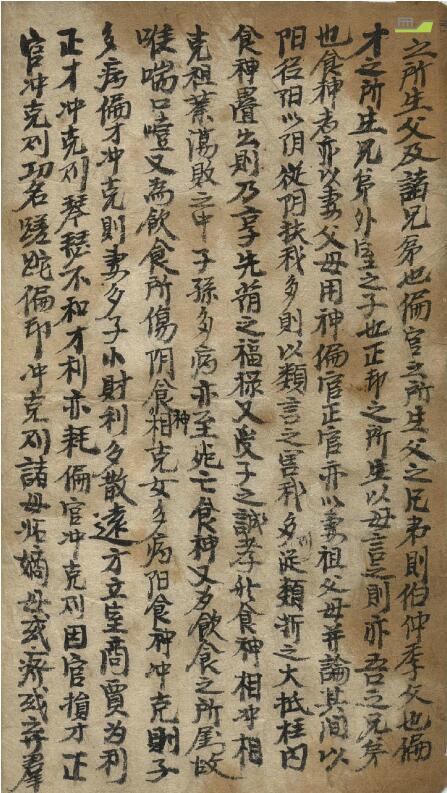 之所生父及諸兄弟也偏官之所生父之兄弟則伯仲季父也偏
才之所生兄弟外室之子也正印之所生以母言之則亦吾之兄弟
也食神者亦以妻父母用神偏官正官亦以妻祖父母并論其間以
阳從阳以阴從阴扶我多則以類言之害我多則從類折之大抵柱內
食神疊出則乃享先蔭之福祿又受子之誠孝然食神相冲相
克祖業蕩敗之中子孫多病亦至妣亡食神又为飲食之所属故
喉喘口噎又為飲食所傷阴食神相克女多病阳食神冲克則子
多病偏才冲克則妻多子小財利多散遠方立室商賈为利
正才冲克則琴瑟不和才利亦耗偏官冲克則因官損才正
官冲克則功名蹉跎偏印冲克則諸母妬嫡母或病或弃羣